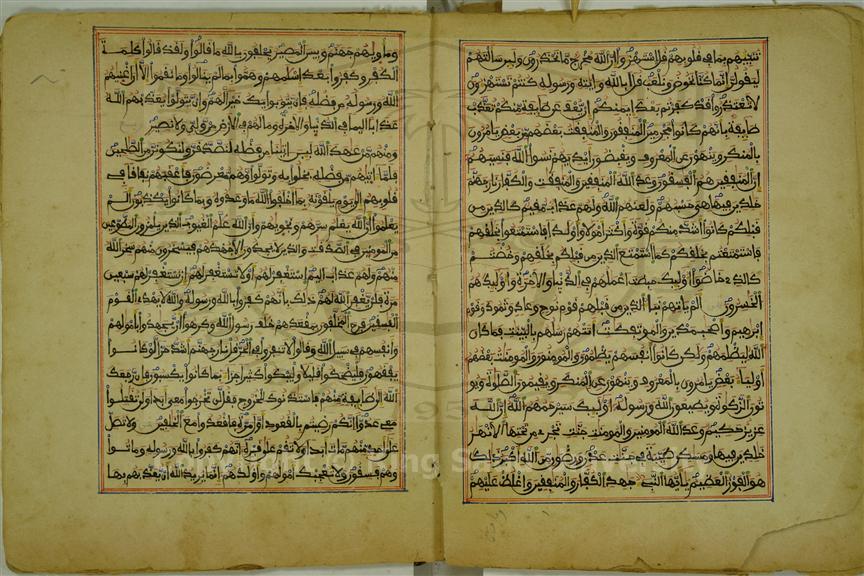 تنبيهم بما في قلوبهم قل استهزءوا ان الله مخرج ما تحذرون ولين سالتهم
ليقولن انما كنا نخوض ونلعب قل ابالله وءايته ورسوله كنتم تستهزءون
لا تعتذروا قد كفرتم بعد ايمنكم ان يعف عن طايفة منكم تعذب
طايفة بانهم كانوا مجرمين المنفقون والمنفقت بعضهم من بعض يامرون
بالمنكر وينهون عن المعروف ويقبضون ايديهم نسوا الله فنسيهم
ان المنفقين هم الفسقون وعد الله المنفقين والمنفقت والكفار نار جهنم
خلدين فيها هي حسبهم ولعنهم الله ولهم عذاب مقيم كالذين من
قبلكم كانوا اشد منكم قوة واكثر امولا واولدا فاستمتعوا بخلقهم
فاستمتعتم بخلقكم كما استمتع الذين من قبلكم بخلقهم وخضتم
كالذي خاضوا اوليك حبطت اعملهم في الدنيا والاخرة واوليك هم
الخسرون الم ياتهم نبا الذين من قبلهم قوم نوح وعاد وثمود وقوم
ابرهيم واصحب مدين والموتفكت اتتهم رسلهم بالبينت فما كان
الله ليظلمهم ولكن كانوا انفسهم يظلمون والمومنون والمومنت بعضهم
اوليا بعض يامرون بالمعروف وينهون عن المنكر ويقيمون الصلوة ويو
تون الزكوة ويطيعون الله ورسوله اوليك سيرحمهم الله ان الله
عزيز حكيم وعد الله المومنين والمومنت جنت تجري من تحتها الانهر
خلدين فيها ومسكن طيبة في جنت عدن ورضون من الله اكبر ذلك
هو الفوز العظيم يايها النبي جهد الكفار والمنفقين واغلظ عليهم
وماويهم جهنم وبيس المصير يحلفون بالله ما قالوا ولقد قالوا كلمة
الكفر وكفروا بعد اسلمهم وهموا بما لم ينالوا وما نقموا الا ان اغنيهم
الله ورسوله من فضله فان يتوبوا يك خيرا لهم وان يتولوا يعذبهم الله
عذابا اليما في الدنيا والاخرة وما لهم في الارض من ولي ولا نصير
ومنهم من عهد الله لين اتينا من فضله لنصدقن ولنكونن من الصلحين
فلما اتيهم من فضله بخلوا به وتولوا وهم معرضون فاعقبهم نفاقا في
قلوبهم الى يوم يلقونه بما اخلفوا الله ما وعدوه وبما كانوا يكذبون الم
يعلموا ان الله يعلم سرهم ونجويهم وان الله علم الغيوب الذين يلمزون المطوعين
من المومنين في الصدقت والذين لا يجدون الا جهدهم فيسخرون منهم سخر الله
منهم ولهم عذاب اليم استغفر لهم او لا تستغفر لهم ان تستغفر لهم سبعين
مرة فلن يغفر الله لهم ذلك بانهم كفروا بالله ورسوله والله لا يهدي القوم
الفسقين فرح المخلفون بمقعدهم خلف رسول الله وكرهوا ان يجهدوا بامولهم
وانفسهم في سبيل الله وقالوا لا تنفروا في الحر قل نار جهنم اشد حرا لو كانوا
يفقهون فليضحكوا قليلا وليبكوا كثيرا جزا بما كانوا يكسبون فان رجعك
الله الى طايفة منهم فاستذنوك للخروج فقل لن تخرجوا معي ابدا ولن تقتلوا
معي عدوا انكم رضيتم بالقعود اول مرة فاقعدوا مع الخلفين ولا تصل
على احد منهم مات ابدا ولا تقم على قبره انهم كفروا بالله ورسوله وماتوا
وهم فسقون ولا تعجبك امولهم واولدهم انما يريد الله ان يعذبهم بها